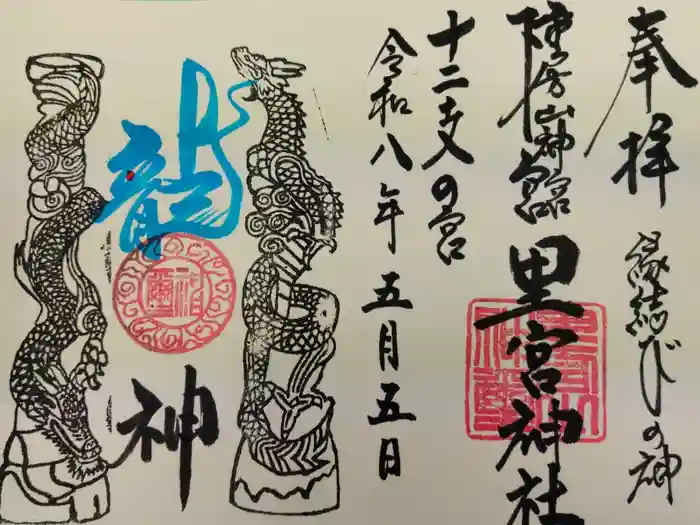 奉拝
縁結びの神
里宮神社
十二支の宮
令和八年五月五日
龍
神